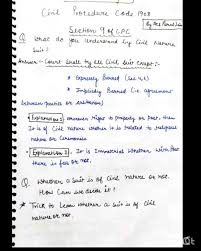 Civil Procedure Code 1908
Section 9 of CPC
Q What do you understand by Civil Nature
Suit?
Answer - Court shall try all Civil Suit except:-
Expressly Barred (Sec 4,5)
Impliedly Barred (i.e. agreement
between parties or
Explanation 1 Right to Property or Post, then
It is of Civil Nature whether it is related to religious
nature or Ceremonies
Explanation 2 It is Immaterial whether With Post
there is fee or not.
Q Whether a Suit is of Civil nature or not.
How Can we decide it?
Trick to learn whether a suit is of Civil
nature or not.